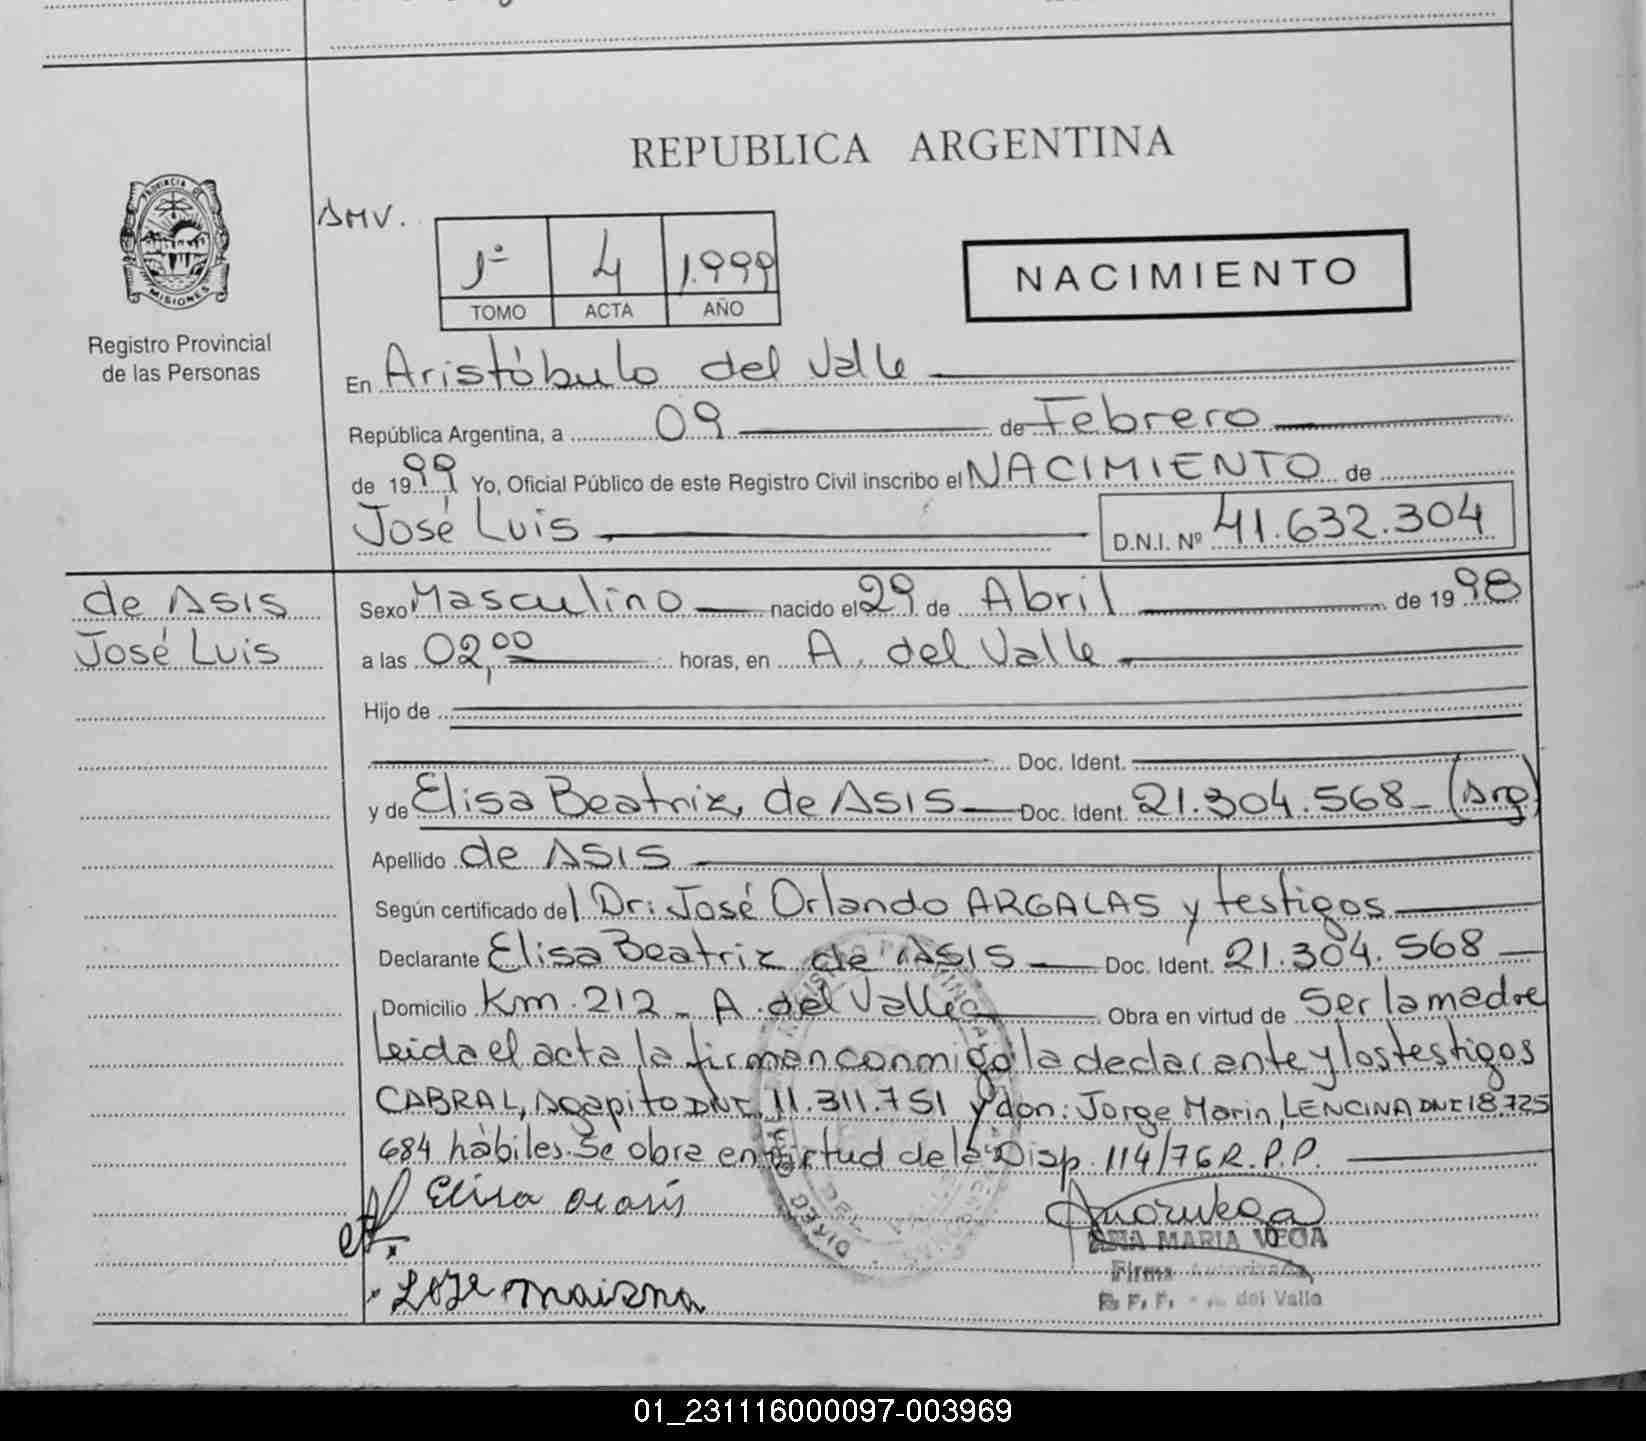 REPUBLICA ARGENTINA
PROVINCIA DE
MISIONES
Registro Provincial
de las Personas
AMV.
1º 4 1.999
TOMO ACTA AÑO
NACIMIENTO
En Aristóbulo del Valle
República Argentina, a 09 de Febrero
de 1999 Yo, Oficial Público de este Registro Civil inscribo el NACIMIENTO de
José Luis D.N.I. Nº 41.632.304
de ASIS
José Luis
Sexo Masculino nacido el 29 de Abril de 1998
a las 02,00 horas, en A. del Valle
Hijo de
Doc. Ident.
y de Elisa Beatriz, de ASIS Doc. Ident. 21.304.568 (Arg)
Apellido de ASIS
Según certificado del Dr: José Orlando ARGALAS y testigos
Declarante Elisa Beatriz de ASIS Doc. Ident. 21.304.568
Domicilio Km. 212 - A. del Valle Obra en virtud de Ser la madre
Leida el acta, la firman conmigo la declarante y los testigos
CABRAL, Agapito DNI 11.311.751 y don: Jorge Marin, LENCINA DNI 18.725
684 hábiles. Se obra en virtud de la Disp. 114/76 R.P.P.
Elisa de asis
ANA MARIA VEGA
Firma Autorizada
del Valle
01_231116000097-003969